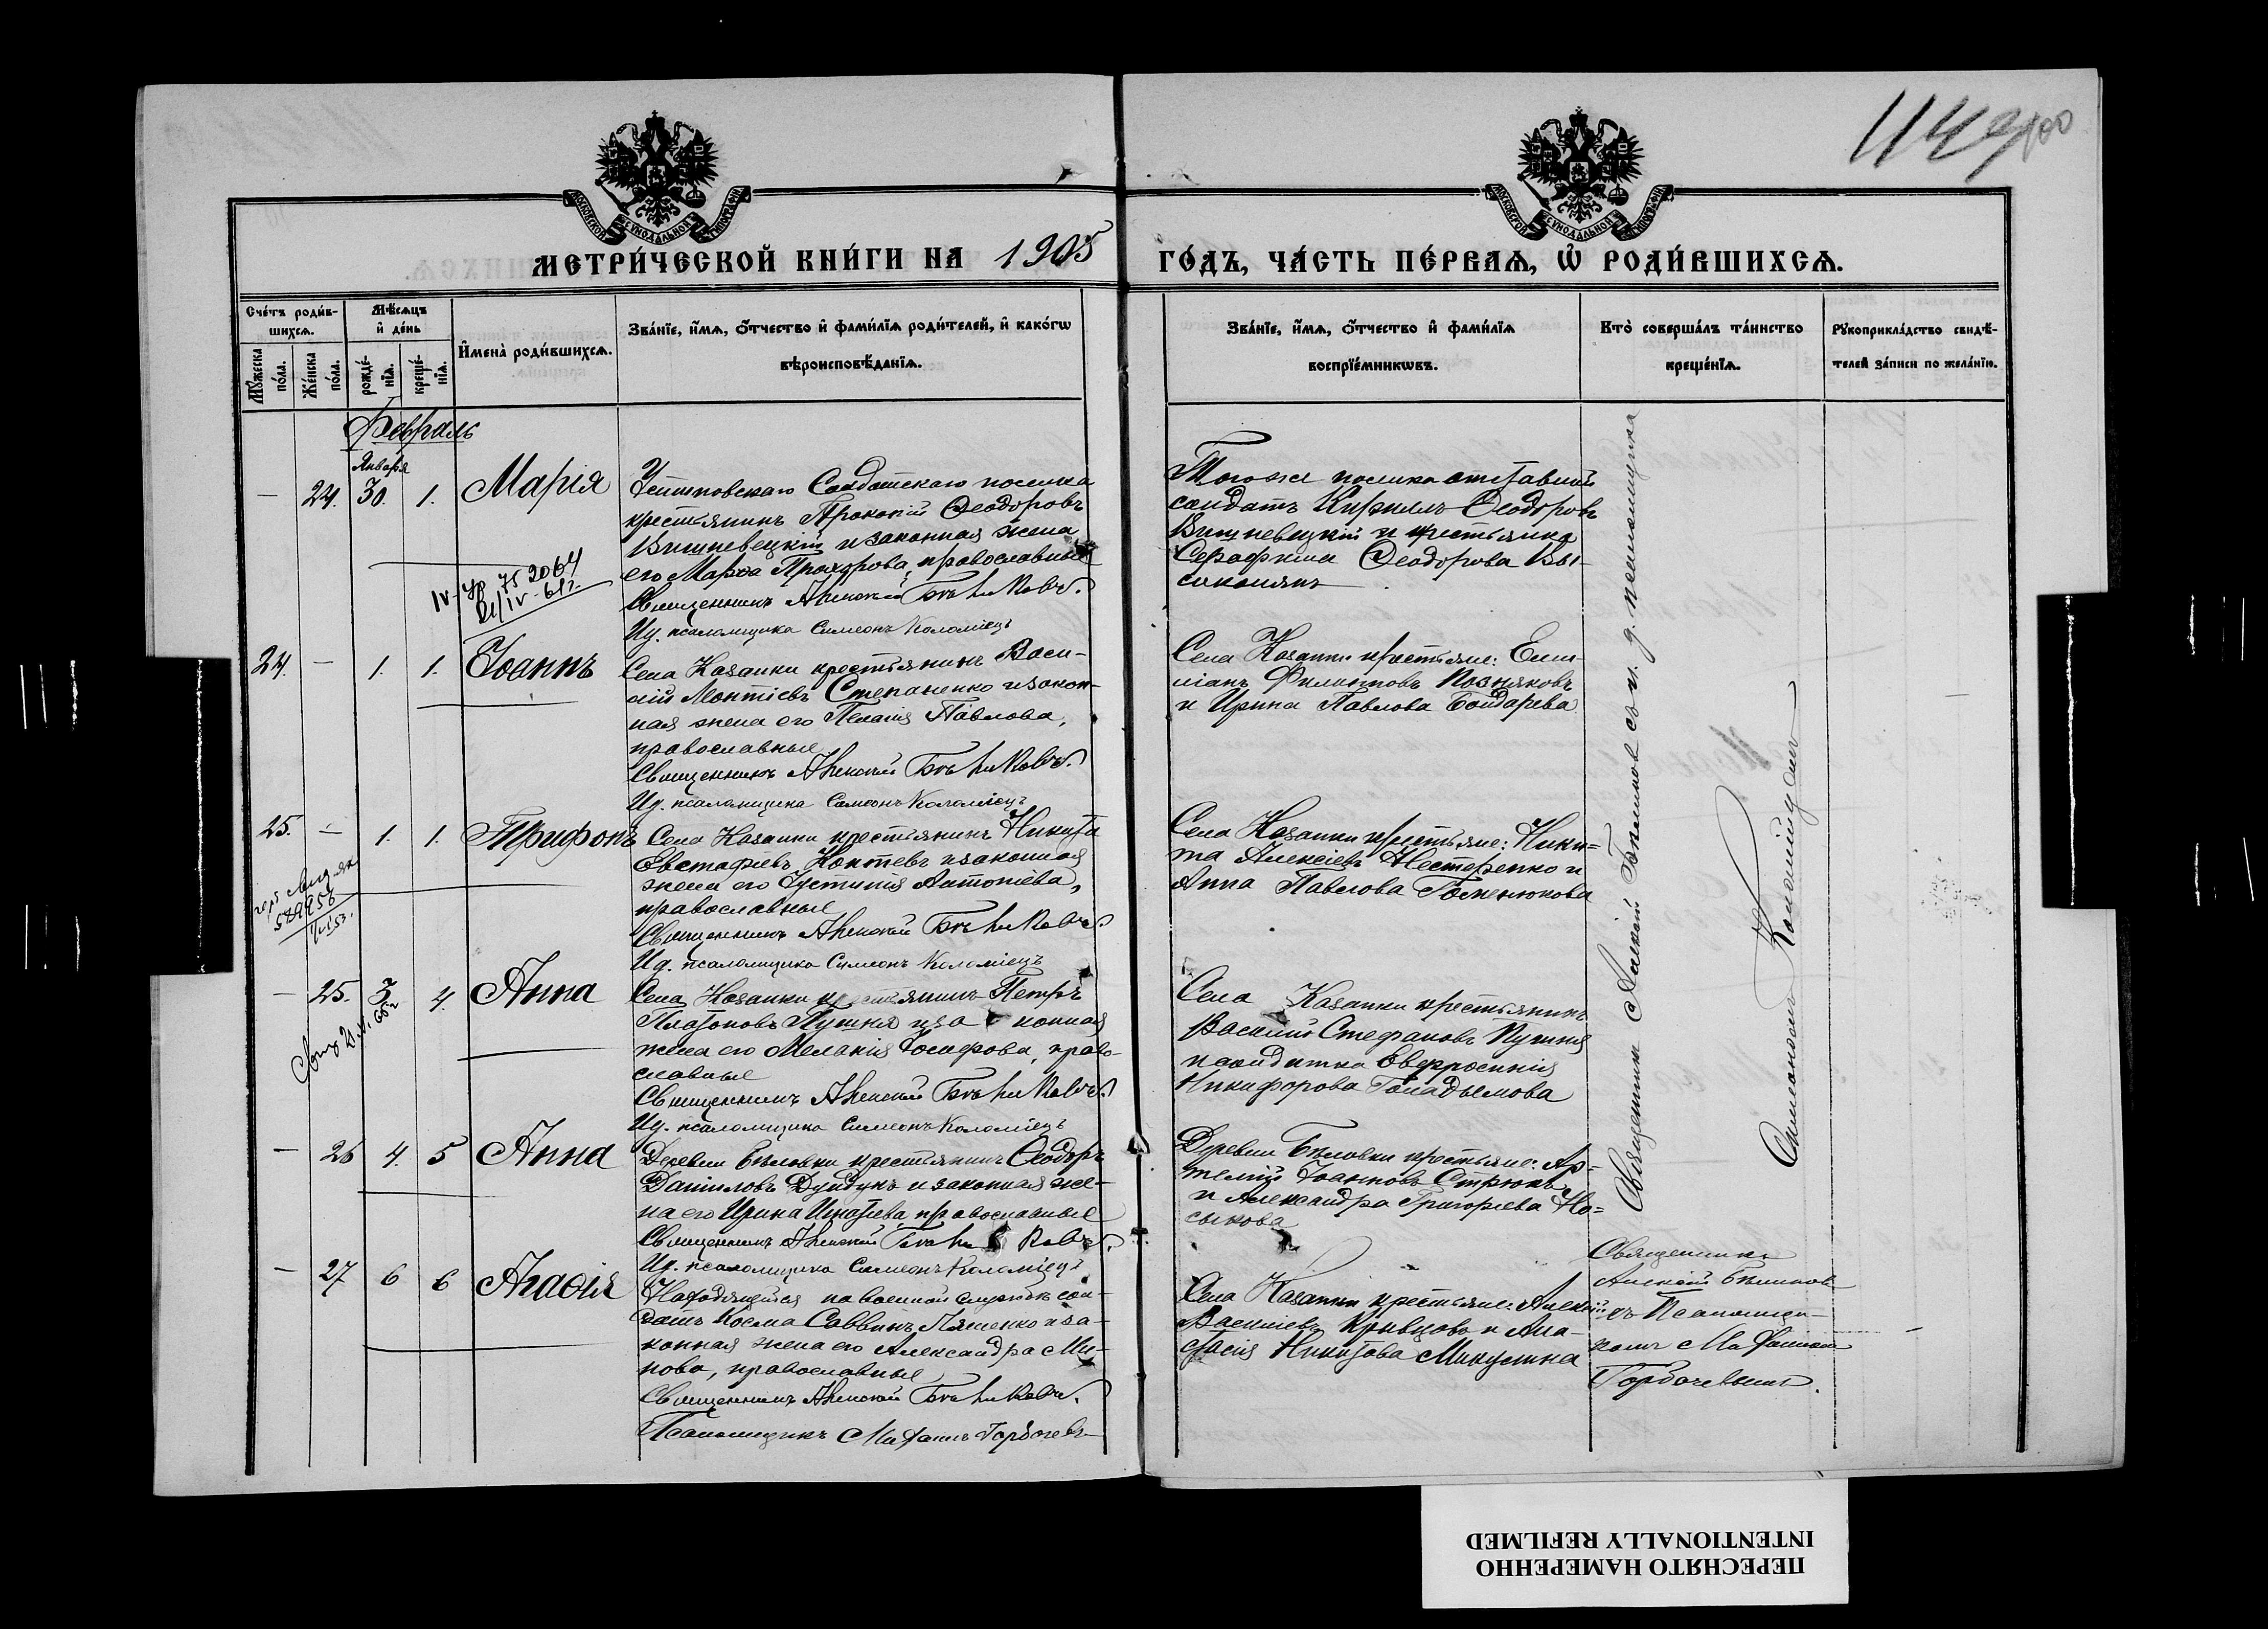 1149
100
МОСКОВСКОЙ СѴНОДАЛЬНОЙ ТИПОГРАФІИ
МОСКОВСКОЙ СѴНОДАЛЬНОЙ ТИПОГРАФІИ
МЕТРИ́ЧЕСКОЙ КНИ́ГИ НА 1905 ГО́ДЪ, ЧА́СТЬ ПЕ́РВАѦ, Ѡ҆ РОДИ́ВШИХСѦ.
Сче́тъ роди́в-
шихсѧ.
Му́жеска по́ла.
Же́нска по́ла.
Мѣ́сѧцъ и҆ де́нь
рожде́-нїѧ.
креще́-нїѧ.
И҆мена̀ роди́вшихсѧ.
Зва́нїе, и҆́мѧ, ѻ҆́тчество и҆ фами́лїѧ роди́телей, и҆ како́гѡ
вѣроисповѣ́данїѧ.
Зва́нїе, и҆́мѧ, ѻ҆́тчество и҆ фами́лїѧ
воспрїе́мникѡвъ.
Кто̀ соверша́лъ та́инство
креще́нїѧ.
Рꙋкоприкла́дство свидѣ́-
телей за́писи по жела́нїю.
Февраль
Января
— 24. 30. 1. Марія
Солдатскаго поселка
крестьянинъ Прокопій Ѳеодоровъ
Вишневецкій и законная жена
его Марѳа Прохорова, православные
Священникъ Алексій Бѣликовъ.
Ид. псаломщика Симеонъ Коломіецъ
Тогоже поселка отставной
солдатъ Кириллъ Ѳеодоровъ
Вишневецкій и крестьянка
Серафима Ѳеодорова Вы-
24. — 1. 1. Іоаннъ
Села Казанки крестьянинъ Васи-
лій Монтіевъ Степаненко и закон-
ная жена его Пелагія Павлова,
православные
Священникъ Алексій Бѣликовъ.
Ид. псаломщика Симеонъ Коломіецъ
Села Казанки крестьяне: Еми-
ліанъ Филипповъ Позняковъ
и Ирина Павлова Бондарева
25. — 1. 1. Трифонъ
Села Казанки крестьянинъ Никита
Евстафіевъ Коптевъ и законная
жена его Іустинія Антоніева,
православные
Священникъ Алексій Бѣликовъ.
Ид. псаломщика Симеонъ Коломіецъ
Села Казанки крестьяне: Ники-
та Алексіевъ Нестеренко и
Анна Павлова Гоменюкова
— 25. 3. 4. Анна
Села Казанки крестьянинъ Петръ
Платоновъ Пушня и законная
жена его Меланія Іосифова, право-
славные
Священникъ Алексій Бѣликовъ.
Ид. псаломщика Симеонъ Коломіецъ
Села Казанки крестьянинъ
Василій Стефановъ Пушня
и солдатка Евфросинія
Никифорова
— 26 4. 5 Анна
Деревни Бѣловки крестьянинъ Ѳеодоръ
Даниловъ и законная же-
на его Ирина Игнатіева православные
Священникъ Алексій Бѣликовъ.
Ид. псаломщика Симеонъ Коломіецъ
Деревни Бѣловки крестьяне: Ар-
темій Іоанновъ Стрюкъ
и Александра Григоріева Но-
сикова
— 27 6 6 Агаѳія
Находящійся на военной службѣ сол-
датъ Косма Саввинъ Ляшенко и за-
конная жена его Александра Ми-
нова, православные
Священникъ Алексій Бѣликовъ.
Псаломщикъ Горбачевъ
Села Казанки крестьяне: Алексій
Василіевъ Кривцовъ и Ана-
стасія Никитова Микулина
Священникъ
Алексій Бѣликовъ
съ Псаломщи-
комъ
Горбачевымъ.
Священникъ Алексій Бѣликовъ съ и. д. псаломщика
Симеономъ Коломійцемъ
ПЕРЕСНЯТО НАМЕРЕННО
INTENTIONALLY REFILMED